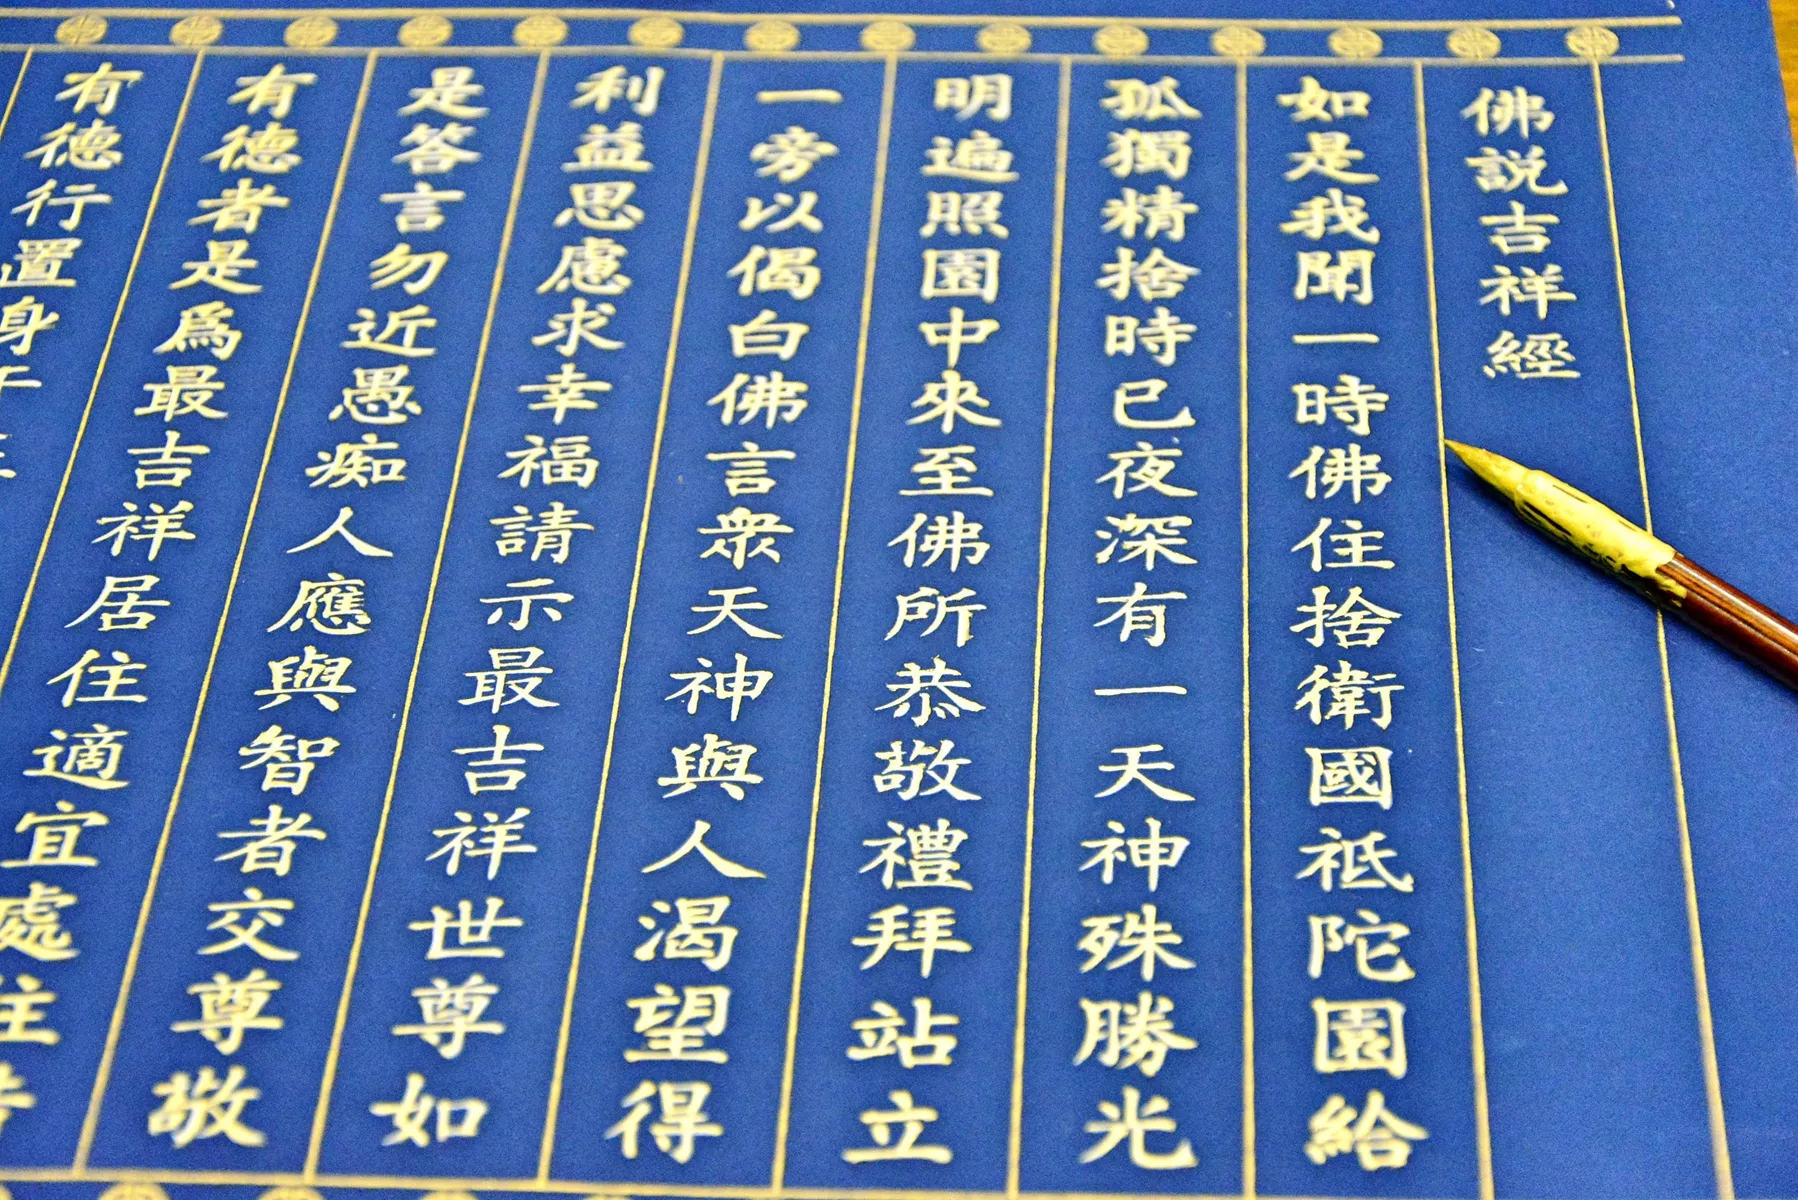 佛説吉祥經
如是我聞一時佛住捨衛國祇陀園給
孤獨精捨時已夜深有一天神殊勝光
明遍照園中來至佛所恭敬禮拜站立
一旁以偈白佛言衆天神與人渴望得
利益思慮求幸福請示最吉祥世尊如
是答言勿近愚痴人應與智者交尊敬
有德者是爲最吉祥居住適宜處
有德行置身
住